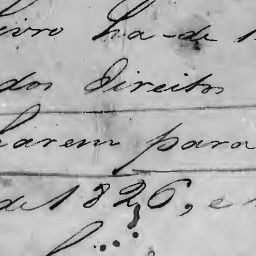 livro ha-de
dos direitos
harem para
de 1826, e